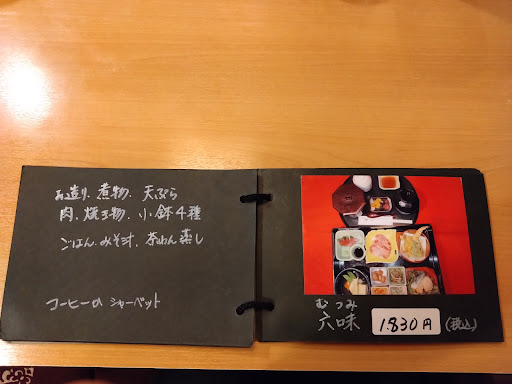 お造り、煮物、天ぷら
肉、焼き物、小鉢4種
ごはん、みそ汁、茶わん蒸し
コーヒーの シャーベット
むつみ
六味 1.830円 (税込)